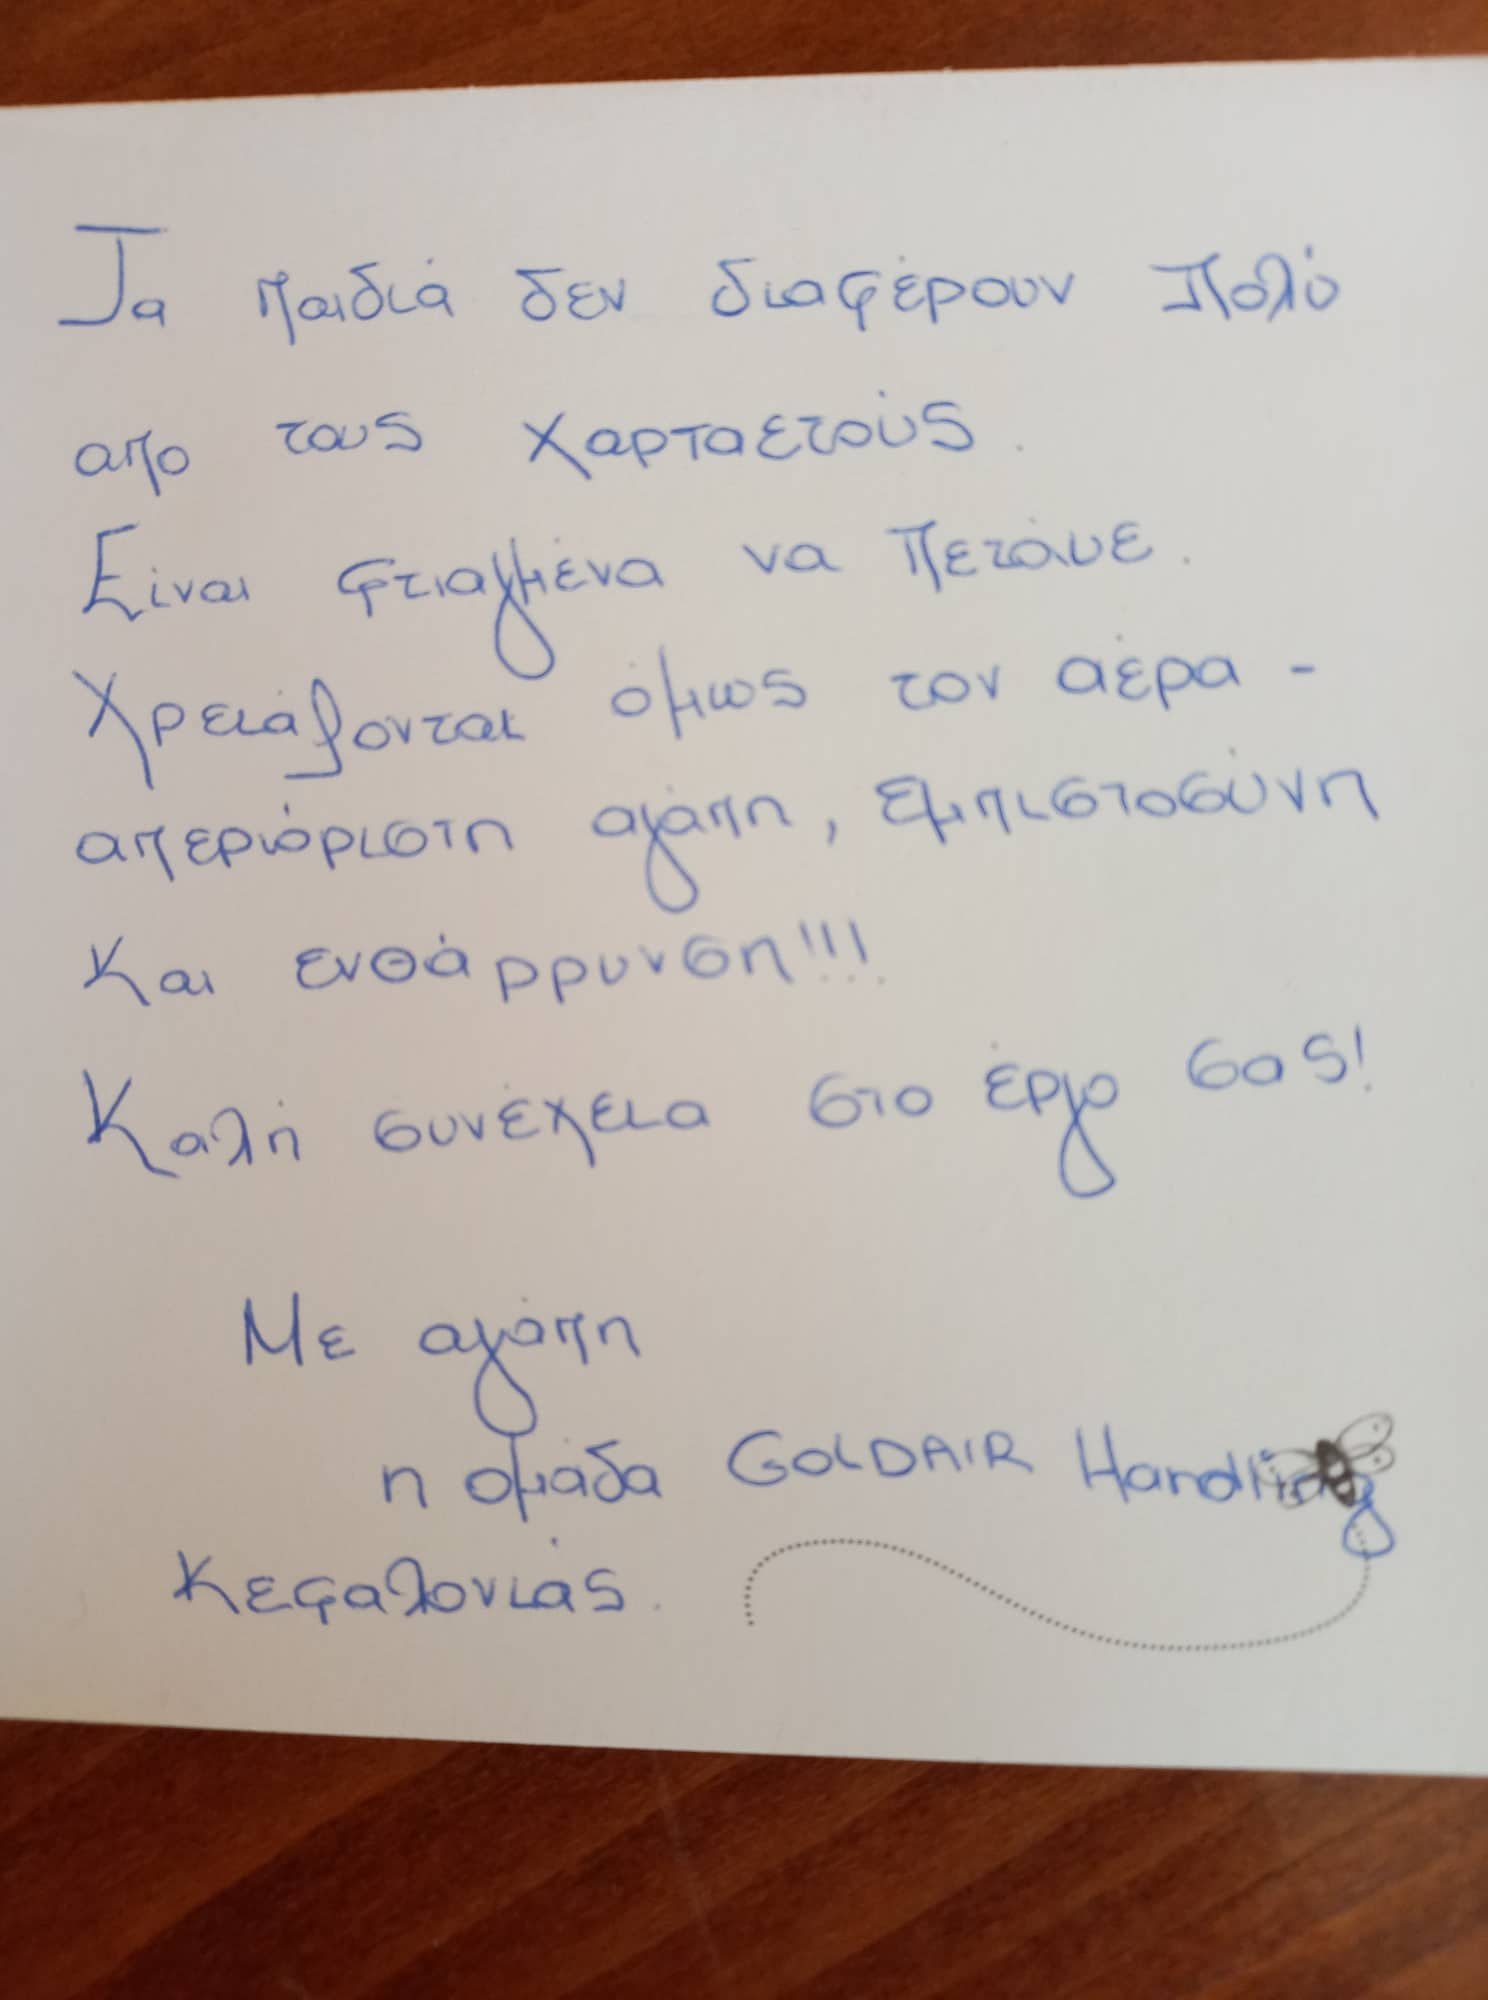 Τα παιδιά δεν διαφέρουν πολύ
απο τους χαρταετούς.
Είναι φτιαγμένα να πετάνε.
Χρειάζονται όμως τον αέρα -
απεριόριστη αγάπη, εμπιστοσύνη
και ενθάρρυνση!!!
Καλή συνέχεια στο έργο σας!
Με αγάπη
η ομάδα GOLDAIR Handling
Κεφαλονιάς.